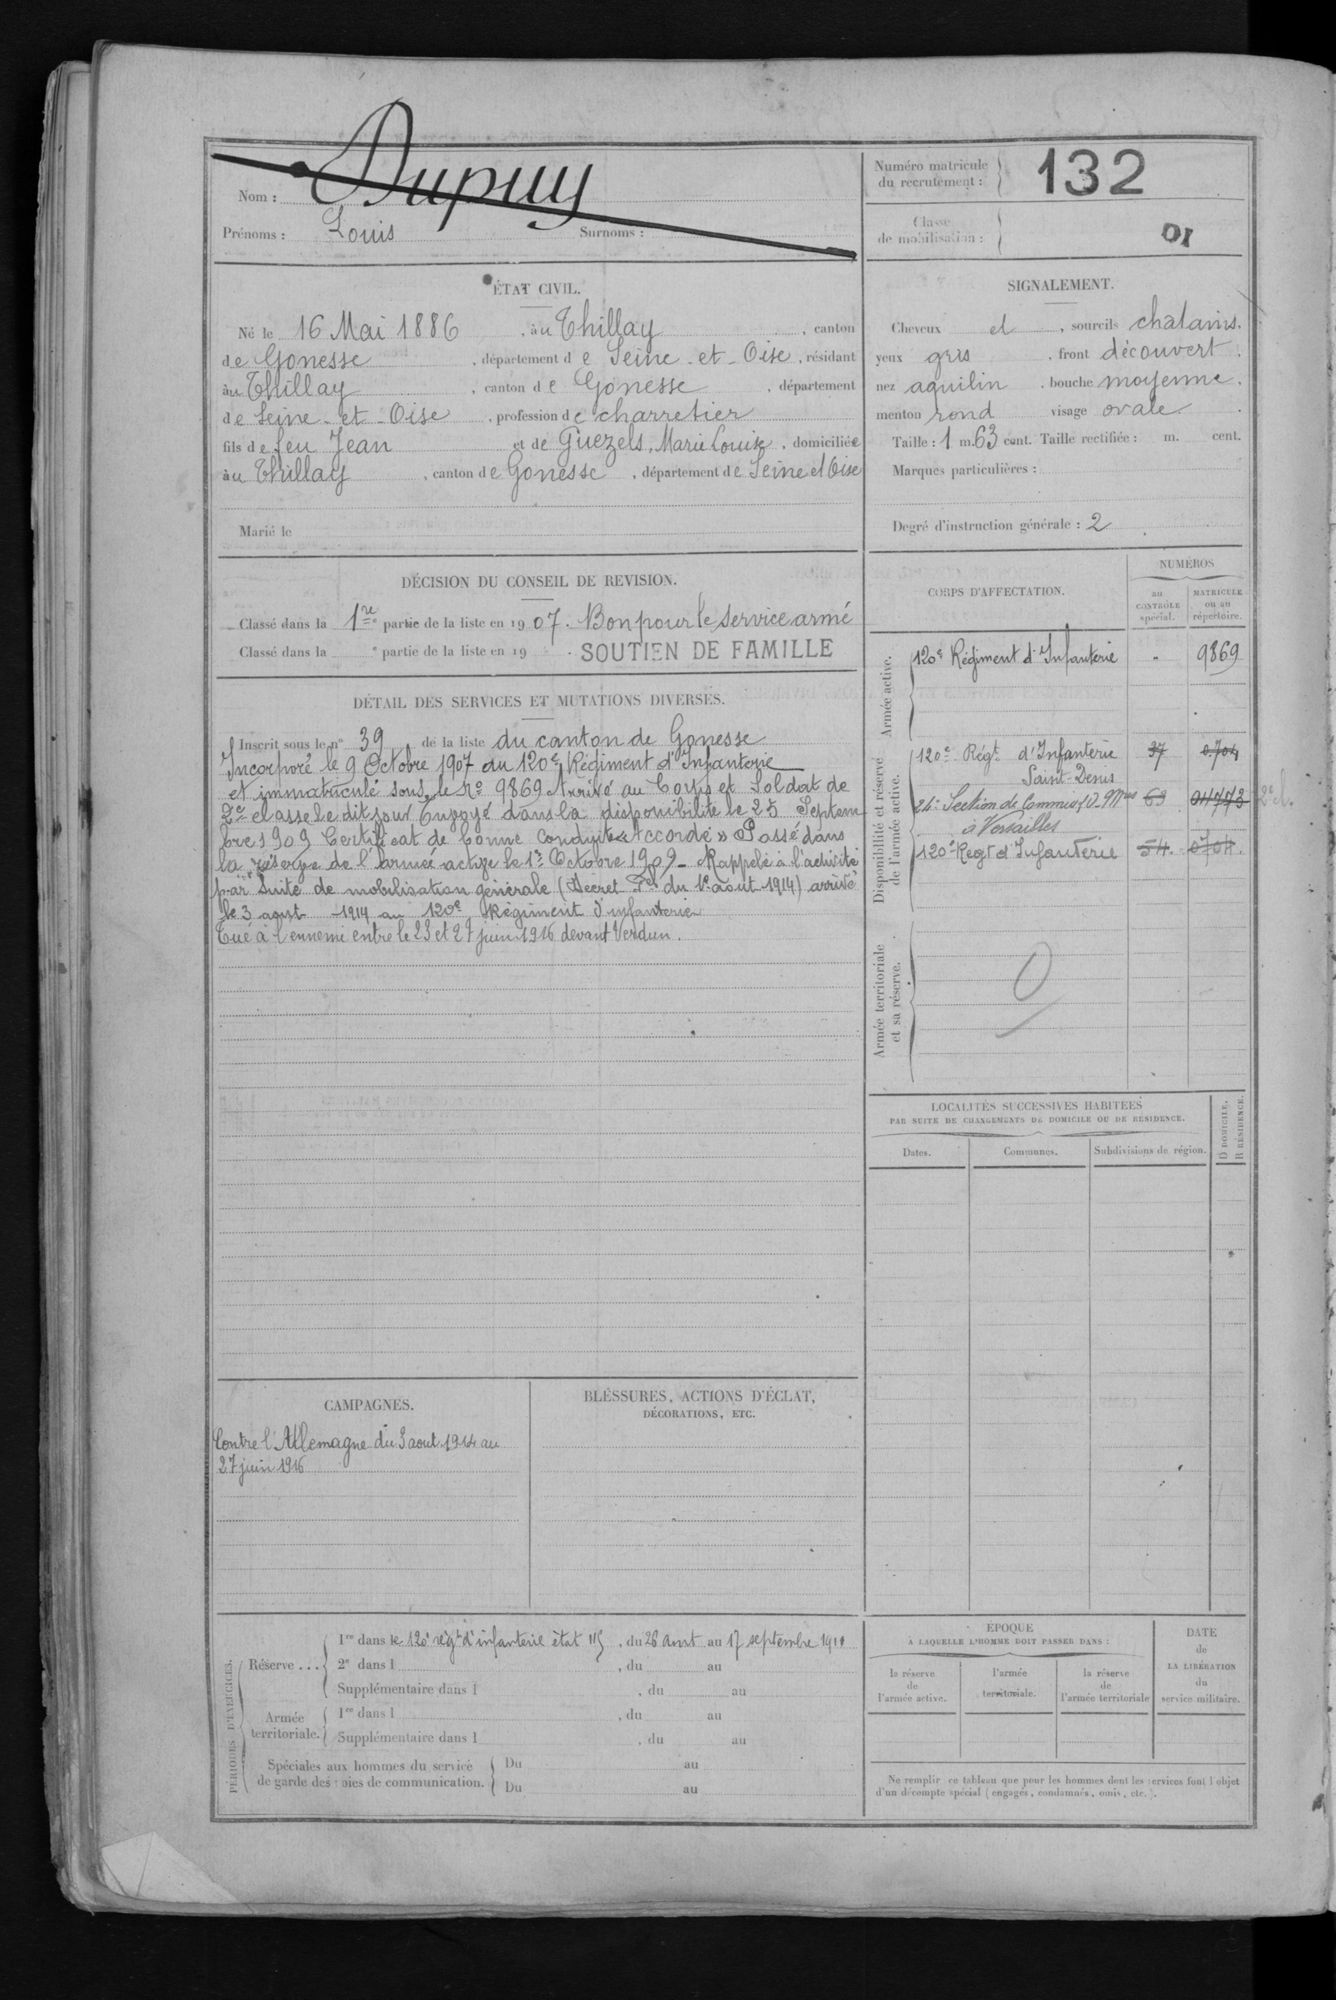 Nom : Dupuy
Prénoms : Louis Surnoms :
Numéro matricule du recrutement : 132
Classe de mobilisation :
ÉTAT CIVIL.
Né le 16 Mai 1886, au Thillay, canton
de Gonesse, département de Seine-et-Oise, résidant
au Thillay, canton de Gonesse, département
de Seine-et-Oise, profession de charretier
fils de feu Jean et de Guezels, Marie Louise, domiciliée
au Thillay, canton de Gonesse, département de Seine et Oise
Marié le
SIGNALEMENT.
Cheveux et, sourcils chatains.
yeux gris, front découvert.
nez aquilin, bouche moyenne.
menton rond visage ovale.
Taille : 1 m. 63 cent. Taille rectifiée : m. cent.
Marques particulières :
Degré d'instruction générale : 2
DÉCISION DU CONSEIL DE REVISION.
Classé dans la 1re partie de la liste en 1907. Bon pour le service armé
Classé dans la e partie de la liste en 19 . SOUTIEN DE FAMILLE
DÉTAIL DES SERVICES ET MUTATIONS DIVERSES.
Inscrit sous le n° 39 de la liste du canton de Gonesse
Incorporé le 9 Octobre 1907 au 120e Régiment d'Infanterie
et immatriculé sous le No 9869 Arrivé au Corps et Soldat de
2e classe le dit jour Envoyé dans la disponibilité le 25 Septem
bre 1909 Certificat de bonne conduite « Accordé » Passé dans
la réserve de l'armée active le 1er Octobre 1909 - Rappelé à l'activité
par suite de mobilisation générale (Décret Pel du 1er août 1914) arrivé
le 3 août 1914 au 120e Régiment d'infanterie
Tué à l'ennemi entre le 23 et 27 juin 1916 devant Verdun.
CORPS D'AFFECTATION.
NUMÉROS
au CONTRÔLE spécial.
MATRICULE ou au répertoire.
Armée active.
120e Régiment d'Infanterie " 9869
Disponibilité et réserve de l'armée active.
120e Régt d'Infanterie 37 0704
Saint-Denis
24e Section de Commis et O. 63
à Versailles
120e Regt d'Infanterie 54. 0704.
Armée territoriale et sa réserve.
LOCALITÉS SUCCESSIVES HABITÉES
PAR SUITE DE CHANGEMENTS DE DOMICILE OU DE RÉSIDENCE.
D DOMICILE. R RÉSIDENCE.
Dates. Communes. Subdivisions de région.
CAMPAGNES.
Contre l'Allemagne du 3 aout 1914 au
27 juin 1916
BLESSURES, ACTIONS D'ÉCLAT,
DÉCORATIONS, ETC.
PÉRIODES D'EXERCICES.
Réserve ...
1re dans le 120e régt d'infanterie, du 26 aout au 17 septembre
2e dans l , du au
Supplémentaire dans l , du au
Armée territoriale.
1re dans l , du au
Supplémentaire dans l , du au
Spéciales aux hommes du service
de garde des voies de communication.
Du au
Du au
ÉPOQUE
À LAQUELLE L'HOMME DOIT PASSER DANS :
la réserve de l'armée active.
l'armée territoriale.
la réserve de l'armée territoriale
DATE de LA LIBÉRATION du service militaire.
Ne remplir ce tableau que pour les hommes dont les services font l'objet
d'un décompte spécial (engagés, condamnés, omis, etc.).